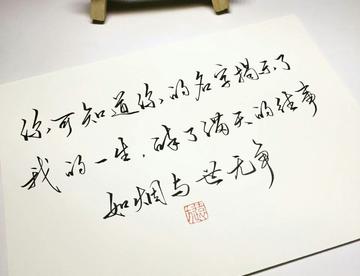 你，可知道你，的名字揭示了
我的一生，碎了满天的往事
如烟与世无争